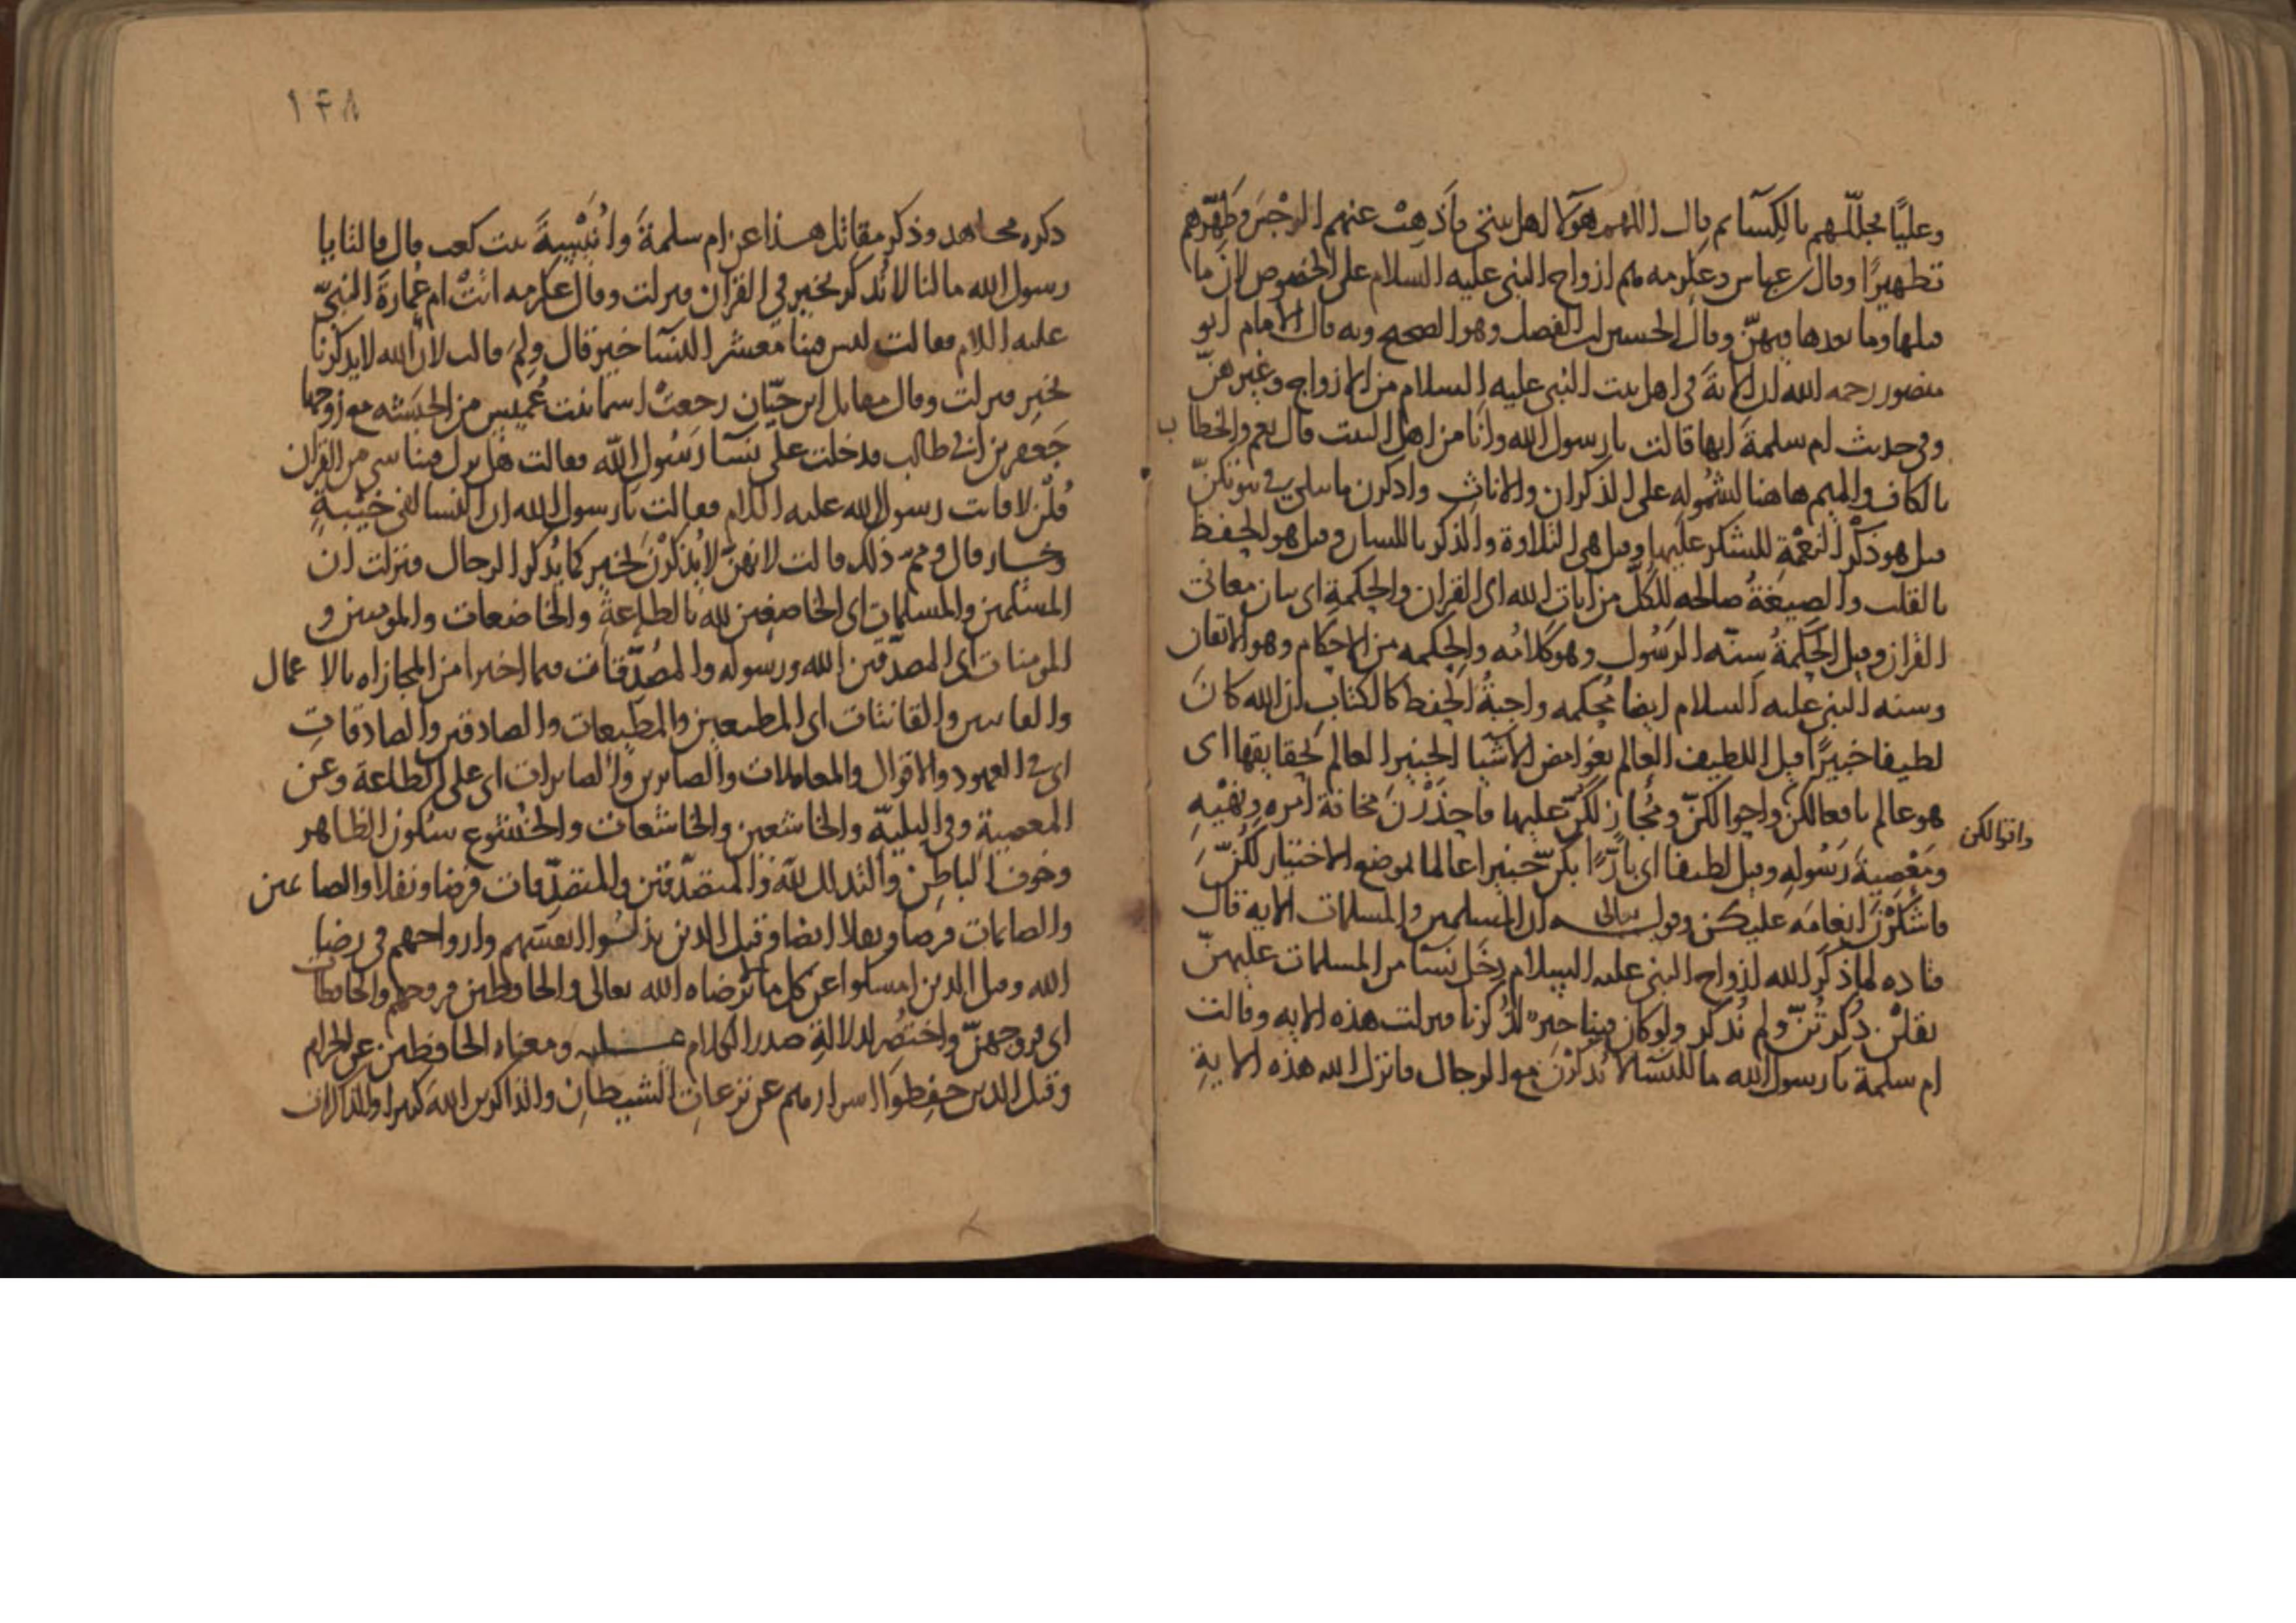 وعليًا فجلّلهم بالكِسآ ثم قال اللهم هؤلا اهل بيتي فأَذهِبْ عنهم الرجْسَ وطَهِّرهم
تطهيرًا وقال ابن عباس وعكرمه هم ازواج النبي عليه السلام على الخصوص لان ما
قبلها وما بعدها فيهنّ وقال الحسين بن الفضل وهو الصحيح وبه قال الامام ابو
منصور رحمه الله ان الاية في اهل بيت النبي عليه السلام من الازواج وغيرهنّ
وفي حديث ام سلمةَ انها قالت يا رسول الله وانا من اهل البيت قال نعم والخطاب
بالكاف والميم هاهنا لشُموله على الذكران والاناث واذكرن ما يتلى في بيوتكنّ
قيل هو ذكْر النعْمة للشكر عليها وقيل هي التلاوة والذكر باللسان وقيل هو الحِفظ
بالقلب والصيغةُ صالحه للكلّ من ايات الله اى القران والحِكمةِ اى بيان معاني
القران وقيل الحكمةُ سنّه الرسُول وهو كلامُه والحِكمه من الاحكام وهو الاتقان
وسنه النبي عليه السلام ايضا مُحكمه واجبةُ الحفظ كالكتاب ان الله كانَ
لطيفا خبيرًا قيل اللطيف العالم بغوامض الاشيا الخبير العالم بحقايقها اى
هو عالم بافعالكنّ واحوالكنّ ومُجازٍ لكُنّ عليها فاحذَرْنَ مخافة امره ونهْيِهِ
واقوالكن
ومَعْصيةَ رَسُولِهِ وقيل لطيفا اى بارًّا بكنّ خبيرا عالما لموضع الاختيار لكُنّ
فاشكُرْنَ انعامَه عليكن وقوله تعالى ان المسلمين والمسلمات الايه قال
قتاده لما ذكر الله ازواج النبي عليه السلام دخَل نسآ من المسلمات عليهنّ
فقلْن ذُكرتُنّ ولم نُذكر ولو كان فينا خيرٌ لذُكرنا فنزلت هذه الايه وقالت
ام سلمة يا رسول الله ما للنسآ لا يُذكرْنَ مع الرجال فانزل الله هذه الايةِ
١٤٨
ذكره مجاهد وذكر مقاتل هذا عن ام سلمةَ وانُيْسةَ بنت كعب قال قالتا يا
رسول الله ما لنا لا نُذكر بخير في القران فنزلت وقال عكرمه اتتْ ام عُمارةَ النبيّ
عليه السلام فقالت ليس فينا معشر النسآ خير قال ولِمَ قالت لان الله لا يذكرنا
بخيرٍ فنزلت وقال مقاتل ابن حيّان رجعتْ اسما بنت عُميس من الحبشه مع زوجها
جَعفر بن ابي طالب فدخلت على نسآ رسُول الله فقالت هل نزل فينا شي من القران
قُلْن لا فاتت رسول الله عليه السلام فقالت يا رسول الله ان النسا لفي خيْبةٍ
وخسار قال ومم ذلك قالت لانهنّ لا يُذكرْنَ بخير كما يُذكر الرجال فنزلت ان
المسلمين والمسلمات اى الخاضعين لله بالطاعةِ والخاضعات والمومنين و
المومنات اى المصدّقين الله ورسوله والمصُدّقات فيما اخبرا من المجازاه بالاعمال
والقانتين والقانتات اى المطيعين والمطيعات والصادقين والصادقاتِ
اى في العهود والاقوال والمعاملات والصابرين والصابرات اى على الطاعة وعن
المعصيةِ وفي البليّه والخاشعين والخاشعات والخشوع سكون الظاهر
وخوف الباطِن والتذلل لله والمتصدّقين والمتصدّقات فرضا ونفلا والصائمين
والصائمات فرضا ونفلا ايضا وقيل الذين بذلُوا انفسَهم وارواحهم في رضا
الله وقيل الذين امسكوا عن كل ما لا يرضاه الله تعالى والحافظين فروجهم والحافظات
اى فروجهنّ واختُصِر لدلالةِ صدر الكلام عليه ومعناه الحافظين عن الحرام
وقيل الذين حفِظوا اسرارهم عن نزعاتِ الشيطانِ والذاكرين الله كثيرا والذاكرات